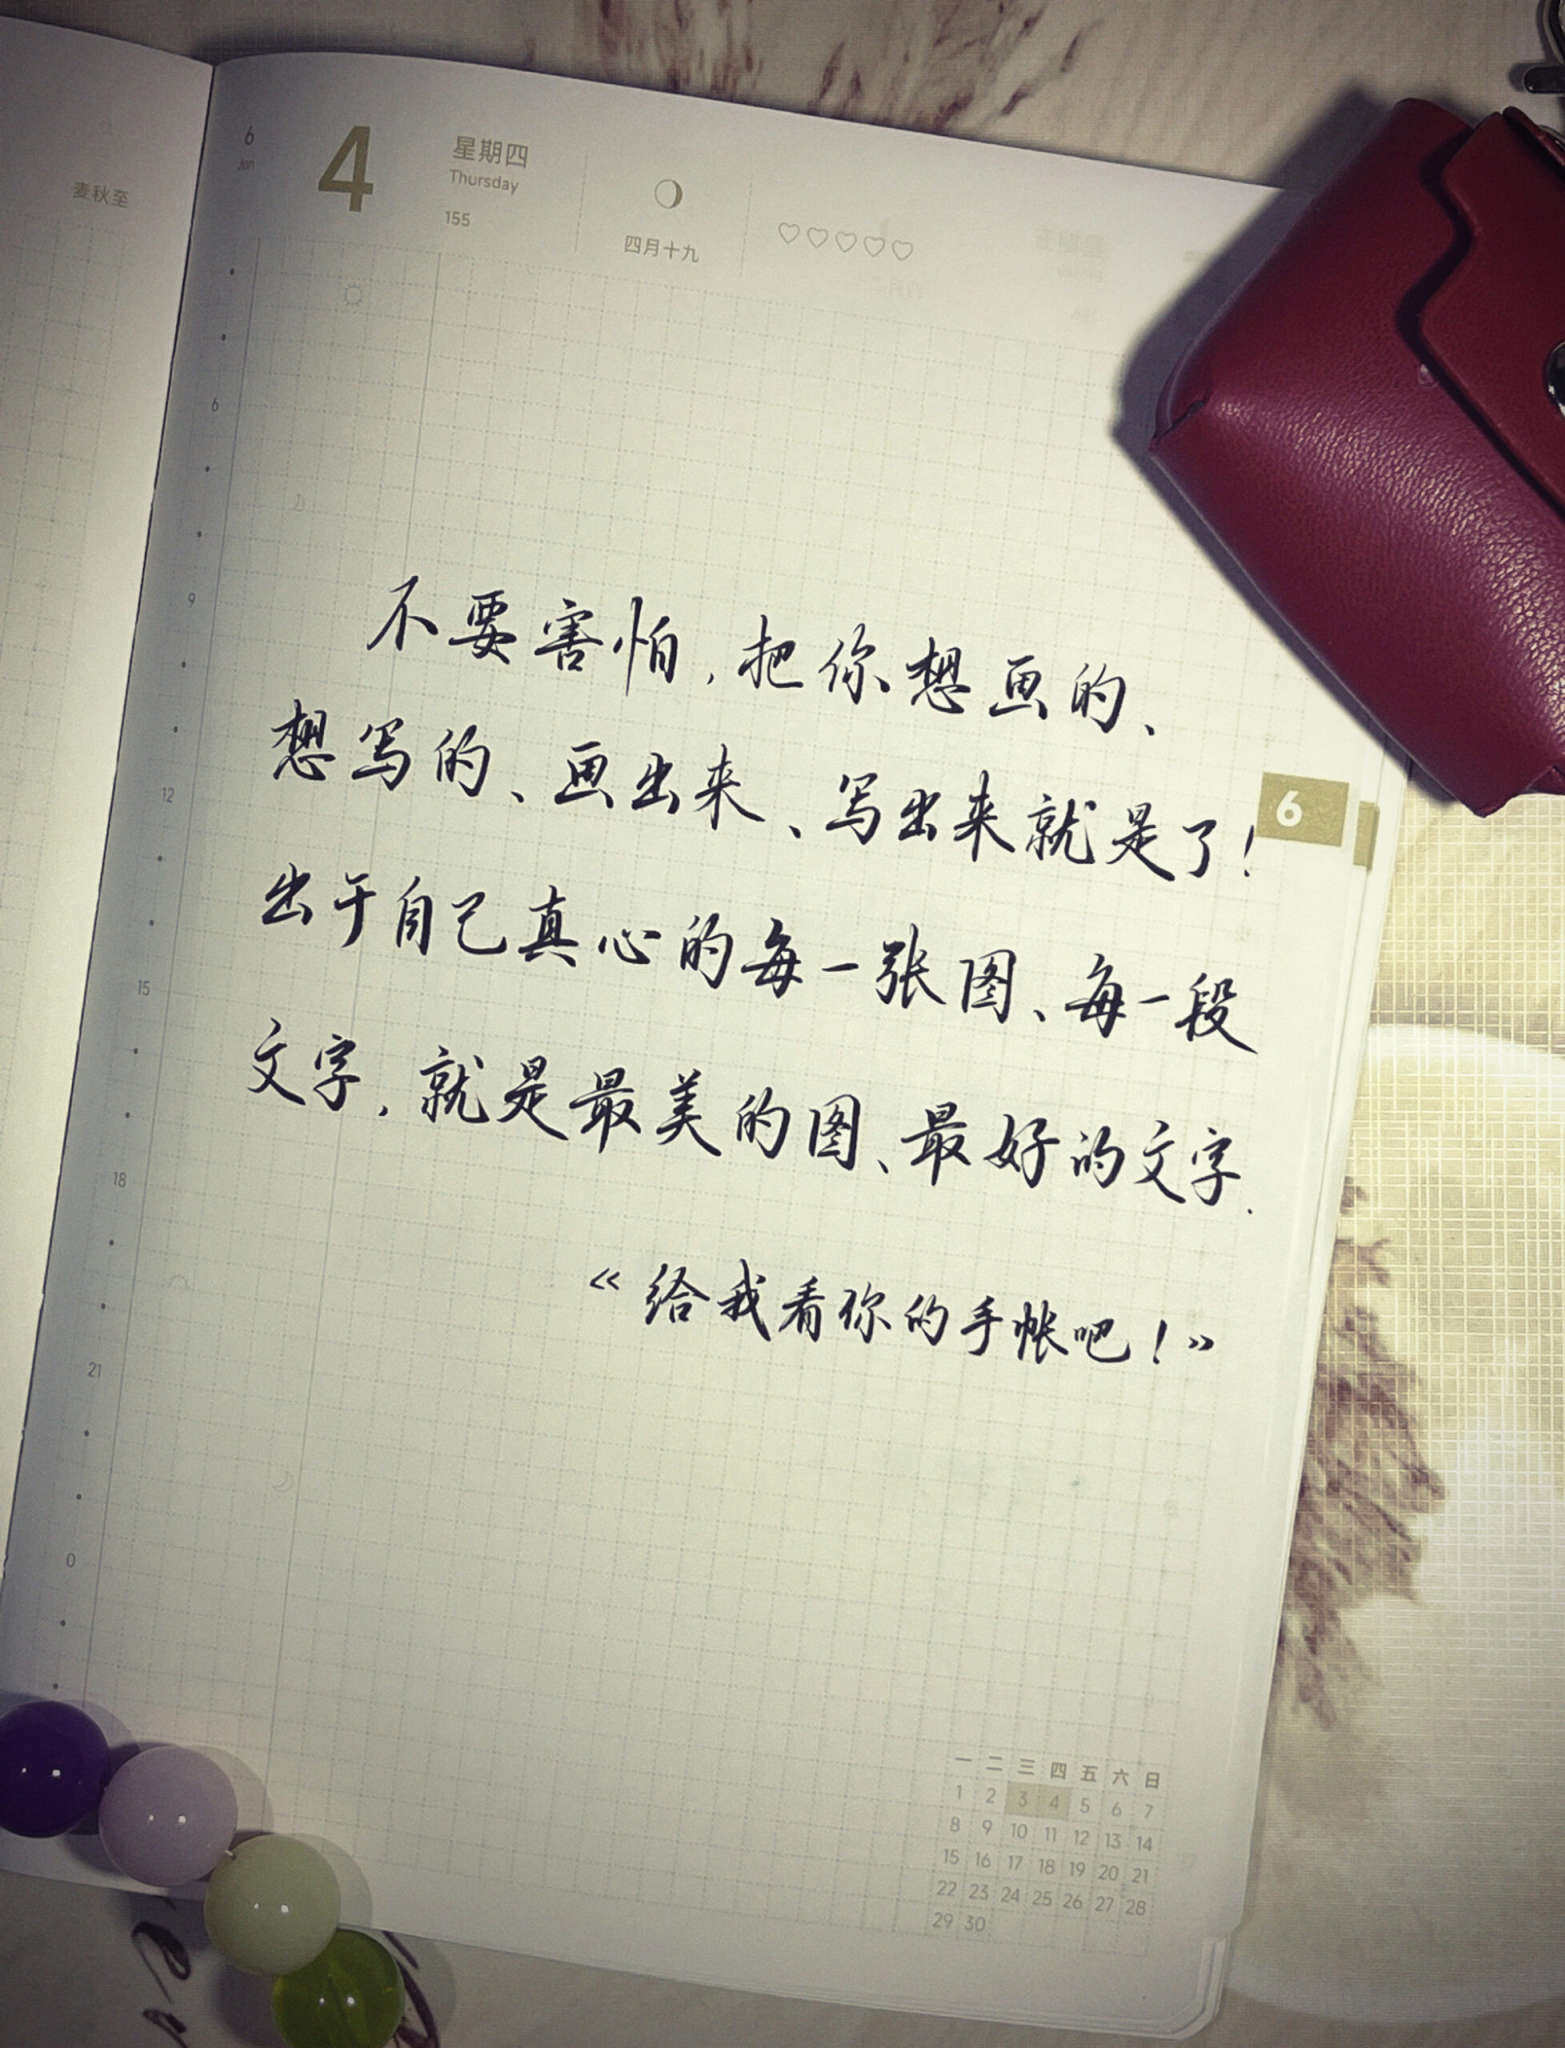 麦秋至
6
Jun
4
星期四
Thursday
155
四月十九
6
9
12
15
18
21
0
不要害怕,把你想画的、
想写的、画出来、写出来就是了!
出于自己真心的每一张图、每一段
文字,就是最美的图、最好的文字.
《给我看你的手帐吧!》
6
一 二 三 四 五 六 日
1 2 3 4 5 6 7
8 9 10 11 12 13 14
15 16 17 18 19 20 21
22 23 24 25 26 27 28
29 30